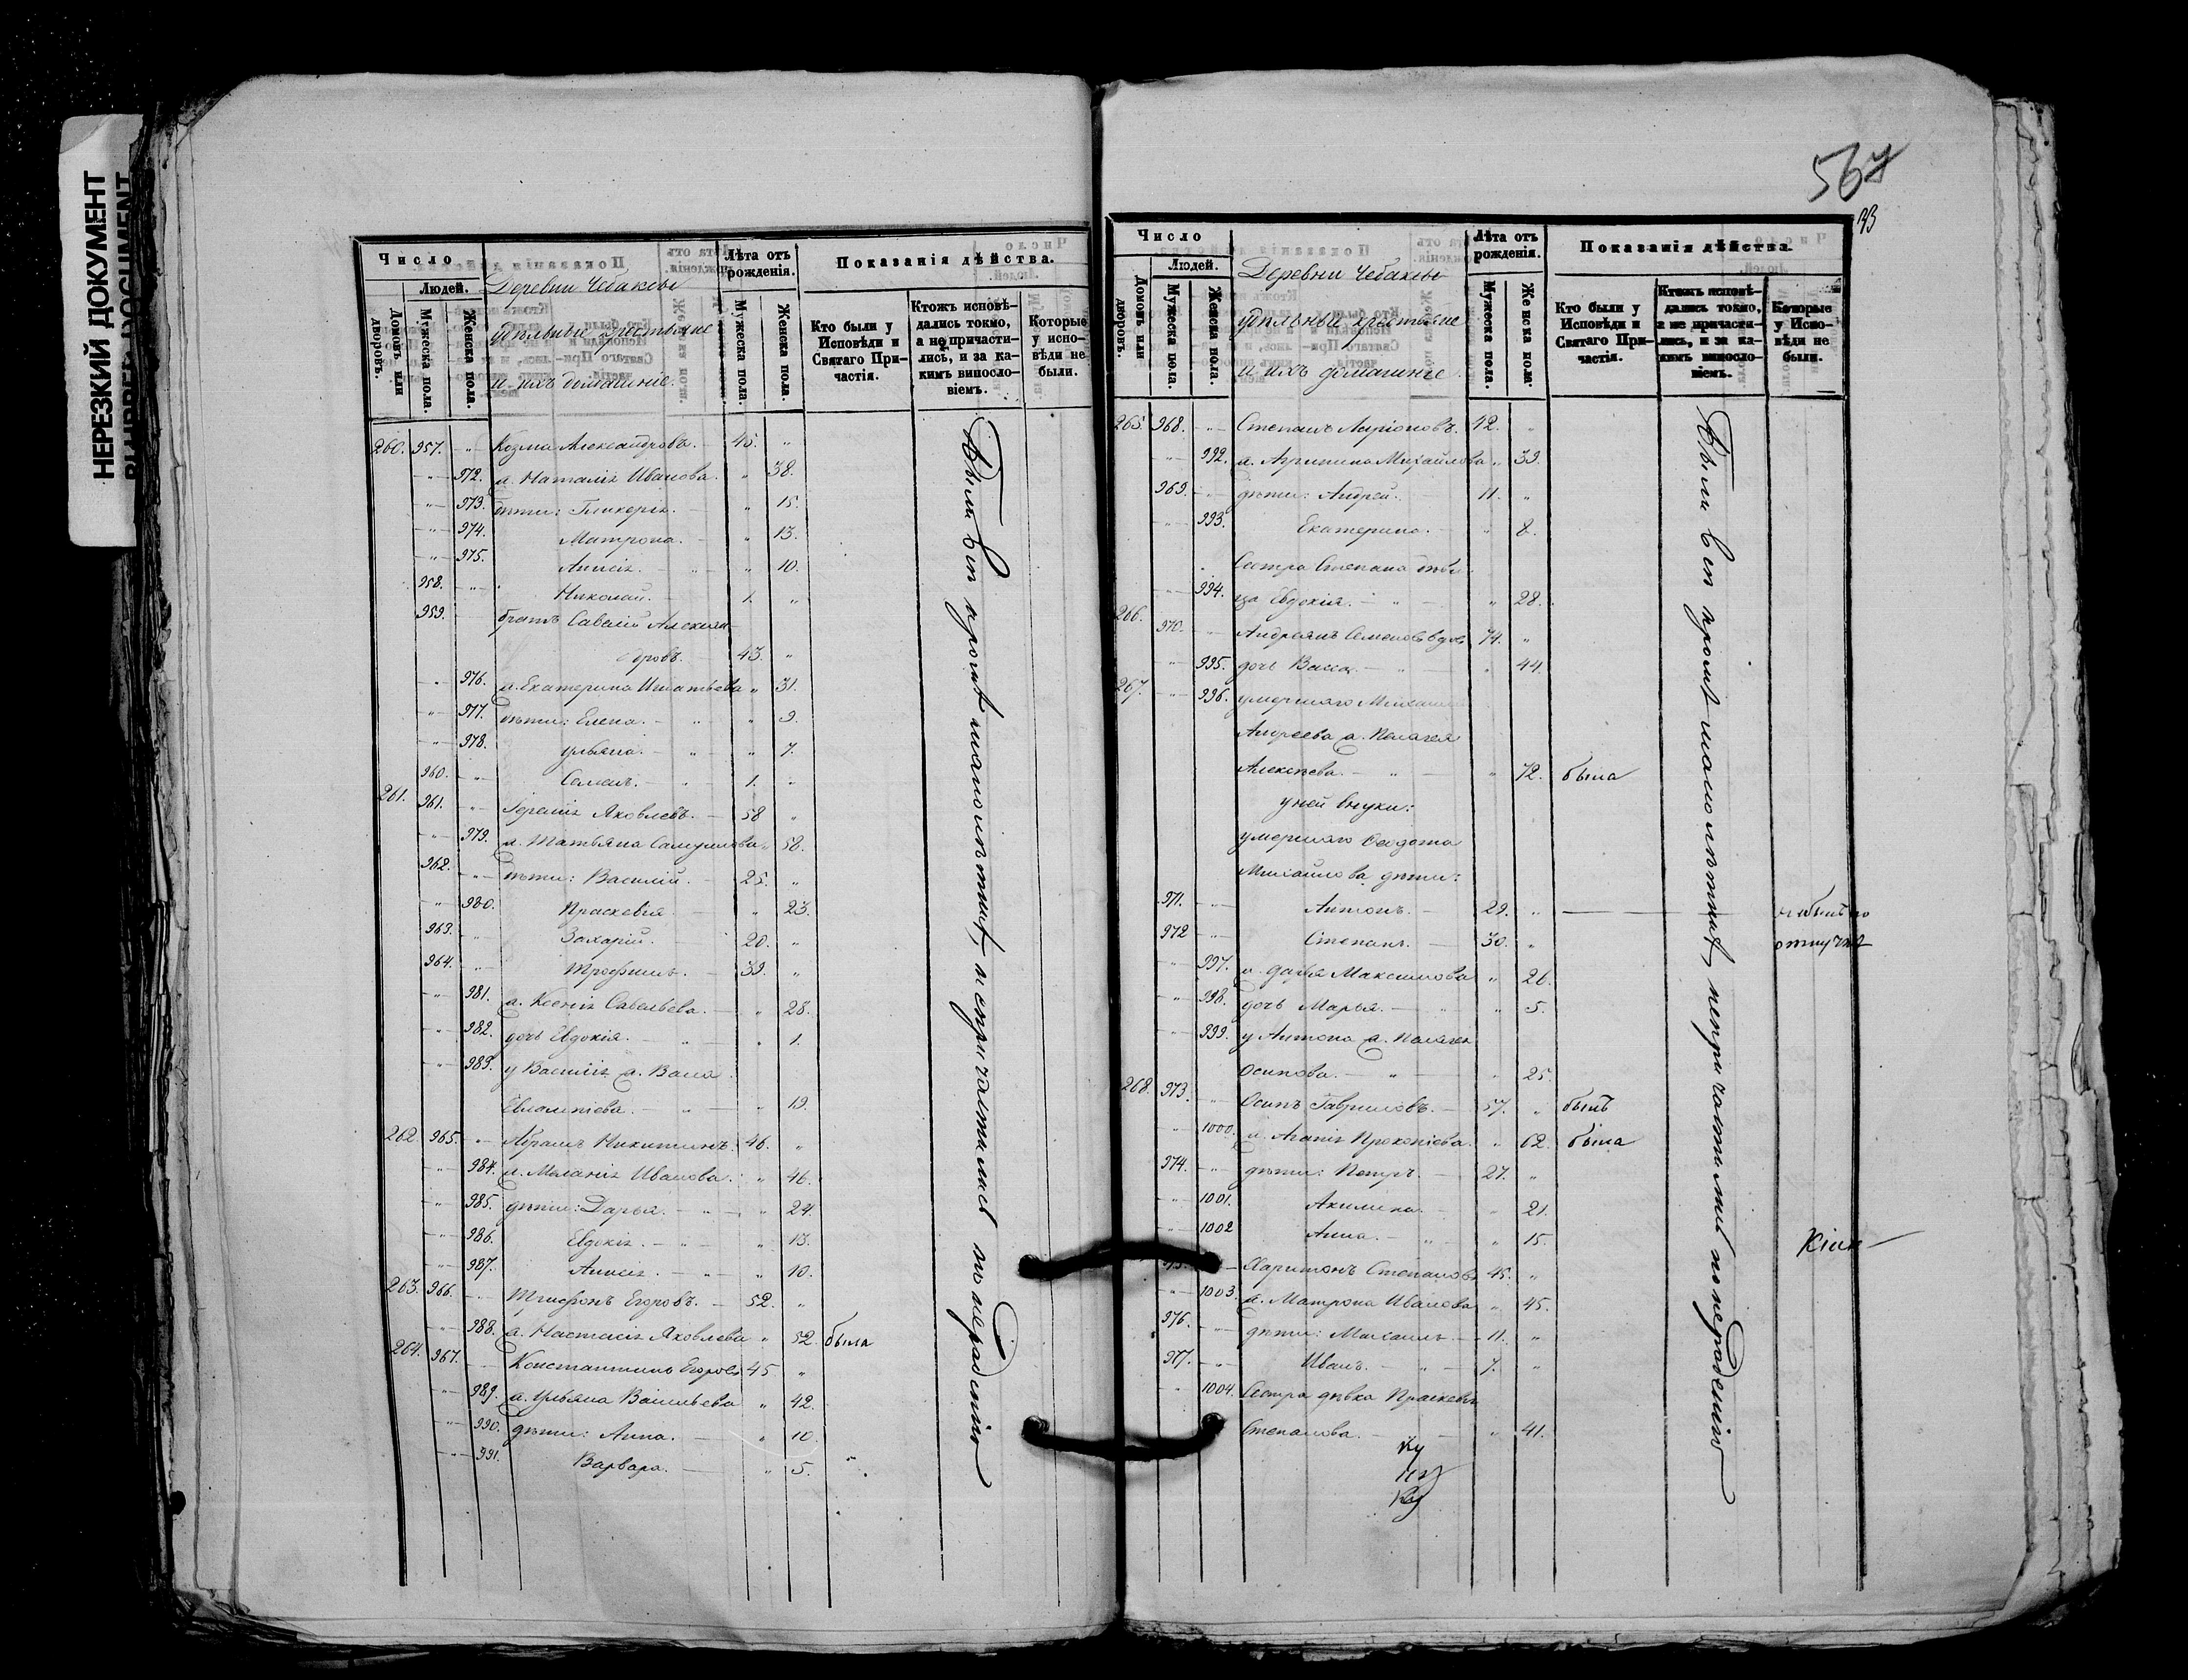 НЕРЕЗКИЙ ДОКУМЕНТ
BLURRED DOCUMENT
Число
Людей.
Домовъ или дворовъ.
Мужеска пола.
Женска пола.
Деревни Чебаксы
удѣльные крестьяне
и ихъ домашніе.
Лѣта отъ рожденія.
Мужеска пола.
Женска пола.
Показанія дѣйства.
Кто были у Исповѣди и Святаго Причастія.
Ктожъ исповѣдались токмо, а не причастились, и за какимъ винословіемъ.
Которые у исповѣди не были.
260. 957. „ Козма Александровъ. 45. „
„ 972. ж. Наталія Иванова. „ 38.
„ 973. дѣти: Гликерія. „ 15.
„ 974. Матрона. „ 13.
„ 975. Анисія. „ 10.
958. „ Николай. 1. „
959. братъ Савелій Алексан-
дровъ. 43. „
„ 976. ж. Екатерина Игнатьева „ 31.
„ 977. дѣти: Елена. „ 9.
„ 978. Ульяна. „ 7.
960. „ Семенъ. 1. „
261. 961. „ Яковлевъ. 58 „
„ 979. ж. Татьяна Самуилова „ 58.
962. „ дѣти: Василій. 25. „
„ 980. Праскевія. „ 23.
963. „ Захарій. 20. „
964. „ Трофимъ. 39. „
„ 981. ж. Ксенія Савельева. „ 28.
„ 982. дочь Евдокія. „ 1.
„ 983. у Василія ж. Васса
Евлампіева. „ 19.
262. 965. „ Абрамъ Никитинъ. 46. „
„ 984. ж. Меланія Иванова. „ 46.
„ 985. дѣти: Дарья. „ 24.
„ 986. Евдокія. „ 13.
„ 987. Анисія. „ 10.
263. 966. „ Трифонъ Егоровъ. 52. „
„ 988. ж. Настасія Яковлева „ 52. была
264. 967. „ Константинъ Егоровъ 45 „
„ 989. ж. Ульяна Васильева „ 42.
„ 990. дѣти: Анна. „ 10.
„ 991. Варвара. „ 5.
Сѣи всѣ кромѣ малолѣтнихъ, не причастились по нерадѣнію
567
Число
Людей.
Домовъ или дворовъ.
Мужеска пола.
Женска пола.
Деревни Чебаксы
удѣльные крестьяне
и ихъ домашніе.
Лѣта отъ рожденія.
Мужеска пола.
Женска пола.
Показанія дѣйства.
Кто были у Исповѣди и Святаго Причастія.
Ктожъ исповѣдались токмо, а не причастились, и за какимъ винословіемъ.
Которые у Исповѣди не были.
265. 968. „ Степанъ Ларіоновъ. 42. „
„ 992. ж. Агрипина Михайлова „ 39.
969. „ дѣти: Андрей. 11. „
„ 993. Екатерина. „ 8.
Сестра Степана дѣви-
„ 994. ца Евдокія. „ 28.
266. 970. „ Андреянъ Семеновъ вдовъ 74. „
„ 995. дочь Васса. „ 44.
267. „ 996. умершаго Михаила
Андреева ж. Пелагея
Алексѣева. „ 72. была
у ней внуки:
умершаго Феодота
Михайлова дѣти:
971. „ Антонъ. 29. „
972 „ Степанъ. 30. „
„ 997. ж. Дарья Максимова „ 26.
„ 998. дочь Марья. „ 5.
„ 999. у Антона ж. Пелагея
Осипова. „ 25.
268. 973. „ Осипъ Гавриловъ. 57. „ былъ
„ 1000. ж. Агапія Прокопіева. „ 62. была
974. „ дѣти: Петръ. 27. „
„ 1001. Акилина. „ 21.
„ 1002 Анна. „ 15.
Харитонъ Степановъ 45. „
„ 1003. ж. Матрона Иванова „ 45.
976. „ дѣти: Михаилъ. 11. „
977. „ Иванъ. 7. „
„ 1004. Сестра дѣвка Праскевія
Степанова. „ 41.
Сѣи всѣ кромѣ малолѣтнихъ, не причастились по нерадѣнію